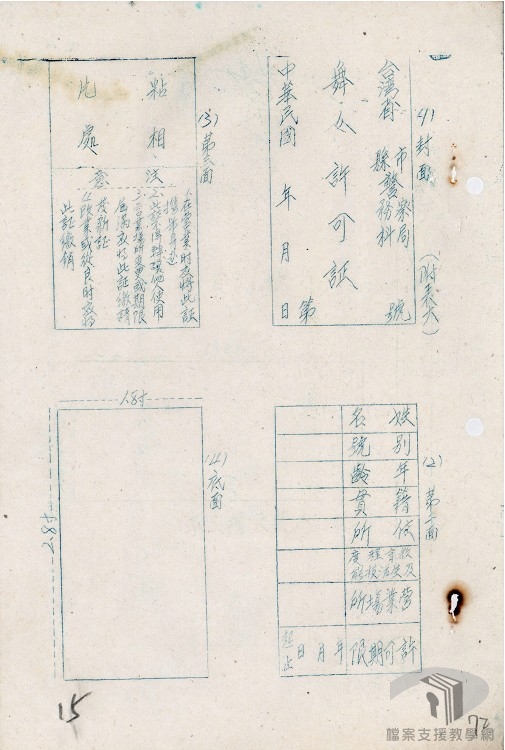 (附表六)
(1)封面
台灣省 市 縣 警察局 警務科
舞女許可証
第 號
中華民國 年 月 日
(2)第一面
姓名
別號
年齡
籍貫
住所
教育程度
及技能
營業場所
許可期限 年 月 日 起 止
(3)第二面
粘相片處
注意
1.在營業時應將此証
2.此証不得轉環他人使用
3.營業場所變更或期限
屆滿應將此証繳轉
發新証
4.改業或從良時應將
此証繳銷
(4)底面
1.8寸
2.8寸
15
72
檔案支援教學網